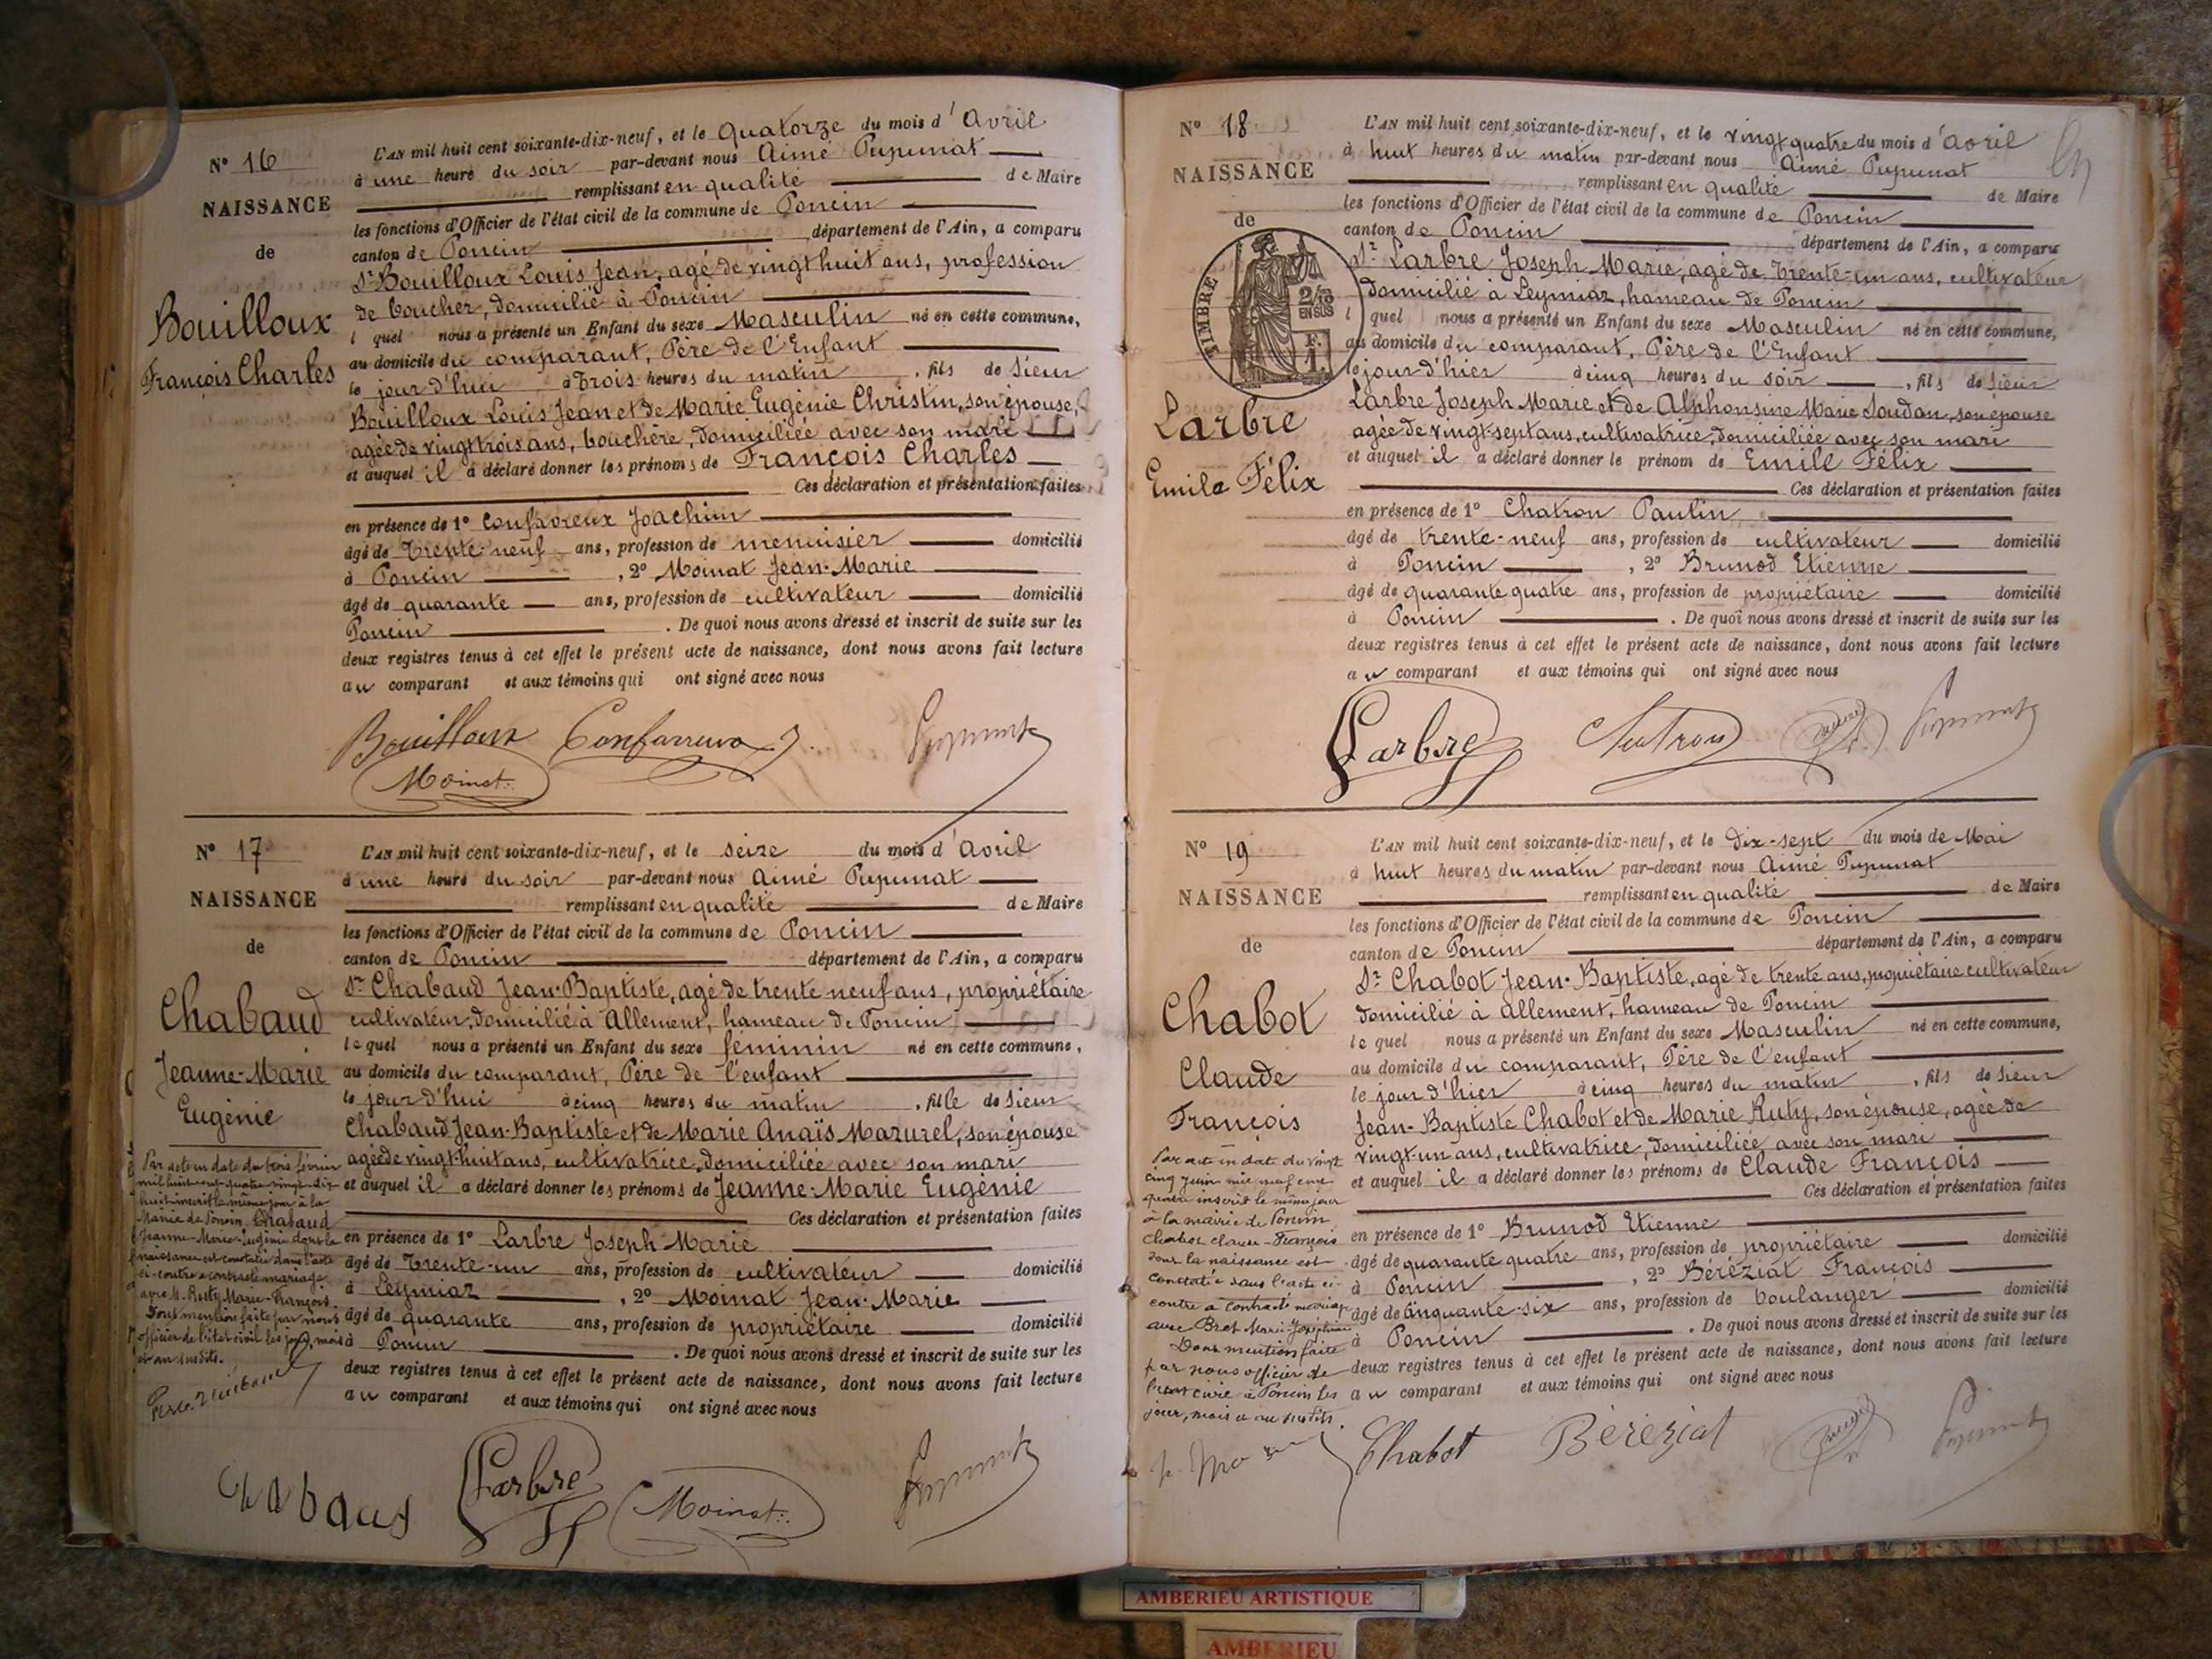 N° 16
NAISSANCE
de
Bouilloux
François Charles
L'AN mil huit cent soixante-dix-neuf, et le quatorze du mois d'Avril
à une heure du soir par-devant nous Aimé Pupunat
remplissant en qualité de Maire
les fonctions d'Officier de l'état civil de la commune de Poncin
canton de Poncin département de l'Ain, a comparu
Sr Bouilloux Louis Jean, agé de vingt huit ans, profession
de boucher, domicilié à Poncin
lequel nous a présenté un Enfant du sexe Masculin né en cette commune,
au domicile du comparant, Père de l'Enfant
le jour d'hui à trois heures du matin, fils de Sieur
Bouilloux Louis Jean et de Marie Eugénie Christin, son épouse,
agée de vingt trois ans, bouchère, domiciliée avec son mari
et auquel il a déclaré donner les prénoms de François Charles
Ces déclaration et présentation faites
en présence de 1° Confavreux Joachim
âgé de trente-neuf ans, profession de menuisier domicilié
à Poncin, 2° Moinat Jean-Marie
âgé de quarante ans, profession de cultivateur domicilié
Poncin. De quoi nous avons dressé et inscrit de suite sur les
deux registres tenus à cet effet le présent acte de naissance, dont nous avons fait lecture
au comparant et aux témoins qui ont signé avec nous
Bouilloux Confavreux J. Pupunat
Moinat
N° 17
NAISSANCE
de
Chabaud
Jeanne-Marie
Eugénie
Par acte en date du trois février
mil huit cent quatre vingt-dix
huit inscrit le même jour à la
Mairie de Poncin, Chabaud
Jeanne-Marie-Eugénie dont la
naissance est constatée dans l'acte
ci-contre a contracté mariage
avec M. Ruty Marie-François.
Dont mention faite par nous
officier de l'état civil les jour, mois
et an susdits.
L'AN mil huit cent soixante-dix-neuf, et le seize du mois d'Avril
à une heure du soir par-devant nous Aimé Pupunat
remplissant en qualité de Maire
les fonctions d'Officier de l'état civil de la commune de Poncin
canton de Poncin département de l'Ain, a comparu
Sr Chabaud Jean-Baptiste, agé de trente neuf ans, propriétaire
cultivateur, domicilié à Allement, hameau de Poncin
lequel nous a présenté un Enfant du sexe féminin né en cette commune,
au domicile du comparant, Père de l'enfant
le jour d'hui à cinq heures du matin, fille de Sieur
Chabaud Jean-Baptiste et de Marie Anaïs Mazurel, son épouse
agée de vingt-huit ans, cultivatrice, domiciliée avec son mari
et auquel il a déclaré donner les prénoms de Jeanne-Marie Eugénie
Ces déclaration et présentation faites
en présence de 1° Larbre Joseph Marie
âgé de Trente-un ans, profession de cultivateur domicilié
à Leymiaz, 2° Moinat Jean-Marie
âgé de quarante ans, profession de propriétaire domicilié
à Poncin. De quoi nous avons dressé et inscrit de suite sur les
deux registres tenus à cet effet le présent acte de naissance, dont nous avons fait lecture
au comparant et aux témoins qui ont signé avec nous
Chabaud Larbre Moinat Pupunat
N° 18
NAISSANCE
de
TIMBRE
2/10
EN SUS
F.
1.
Larbre
Emile Félix
L'AN mil huit cent soixante-dix-neuf, et le vingt quatre du mois d'avril
à huit heures du matin par-devant nous Aimé Pupunat
remplissant en qualité de Maire
les fonctions d'Officier de l'état civil de la commune de Poncin
canton de Poncin département de l'Ain, a comparu
Sr Larbre Joseph Marie, agé de trente-un ans, cultivateur
domicilié à Leymiaz, hameau de Poncin
l quel nous a présenté un Enfant du sexe Masculin né en cette commune,
au domicile du comparant, Père de l'Enfant
le jour d'hier à cinq heures du soir, fils de Sieur
Larbre Joseph Marie et de Alphonsine Marie Soudan, son épouse
agée de vingt-sept ans, cultivatrice, domiciliée avec son mari
et auquel il a déclaré donner le prénom de Emile Félix
Ces déclaration et présentation faites
en présence de 1° Chatron Paulin
âgé de trente-neuf ans, profession de cultivateur domicilié
à Poncin, 2° Brunod Etienne
âgé de quarante quatre ans, profession de propriétaire domicilié
à Poncin. De quoi nous avons dressé et inscrit de suite sur les
deux registres tenus à cet effet le présent acte de naissance, dont nous avons fait lecture
au comparant et aux témoins qui ont signé avec nous
Larbre Chatron Pupunat
N° 19
NAISSANCE
de
Chabot
Claude
François
Par acte en date du vingt
cinq juin mil neuf cent
quatre inscrit le même jour
à la mairie de Poncin,
Chabot Claude-François
dont la naissance est
constatée dans l'acte ci-
contre a contracté mariage
avec Bret Marie Joséphine
Dont mention faite
par nous officier de
l'état civil à Poncin les
jour, mois et an susdits.
L'AN mil huit cent soixante-dix-neuf, et le dix-sept du mois de Mai
à huit heures du matin par-devant nous Aimé Pupunat
remplissant en qualité de Maire
les fonctions d'Officier de l'état civil de la commune de Poncin
canton de Poncin département de l'Ain, a comparu
Sr Chabot Jean-Baptiste, agé de trente ans, propriétaire cultivateur
domicilié à Allement, hameau de Poncin
lequel nous a présenté un Enfant du sexe Masculin né en cette commune,
au domicile du comparant, Père de l'enfant
le jour d'hier à cinq heures du matin, fils de Sieur
Jean-Baptiste Chabot et de Marie Ruty, son épouse, agée de
vingt-un ans, cultivatrice, domiciliée avec son mari
et auquel il a déclaré donner les prénoms de Claude François
Ces déclaration et présentation faites
en présence de 1° Brunod Etienne
âgé de quarante quatre ans, profession de propriétaire domicilié
à Poncin, 2° Béréziat François
âgé de cinquante-six ans, profession de boulanger domicilié
à Poncin. De quoi nous avons dressé et inscrit de suite sur les
deux registres tenus à cet effet le présent acte de naissance, dont nous avons fait lecture
au comparant et aux témoins qui ont signé avec nous
Chabot Béréziat Pupunat
AMBERIEU ARTISTIQUE
AMBERIEU